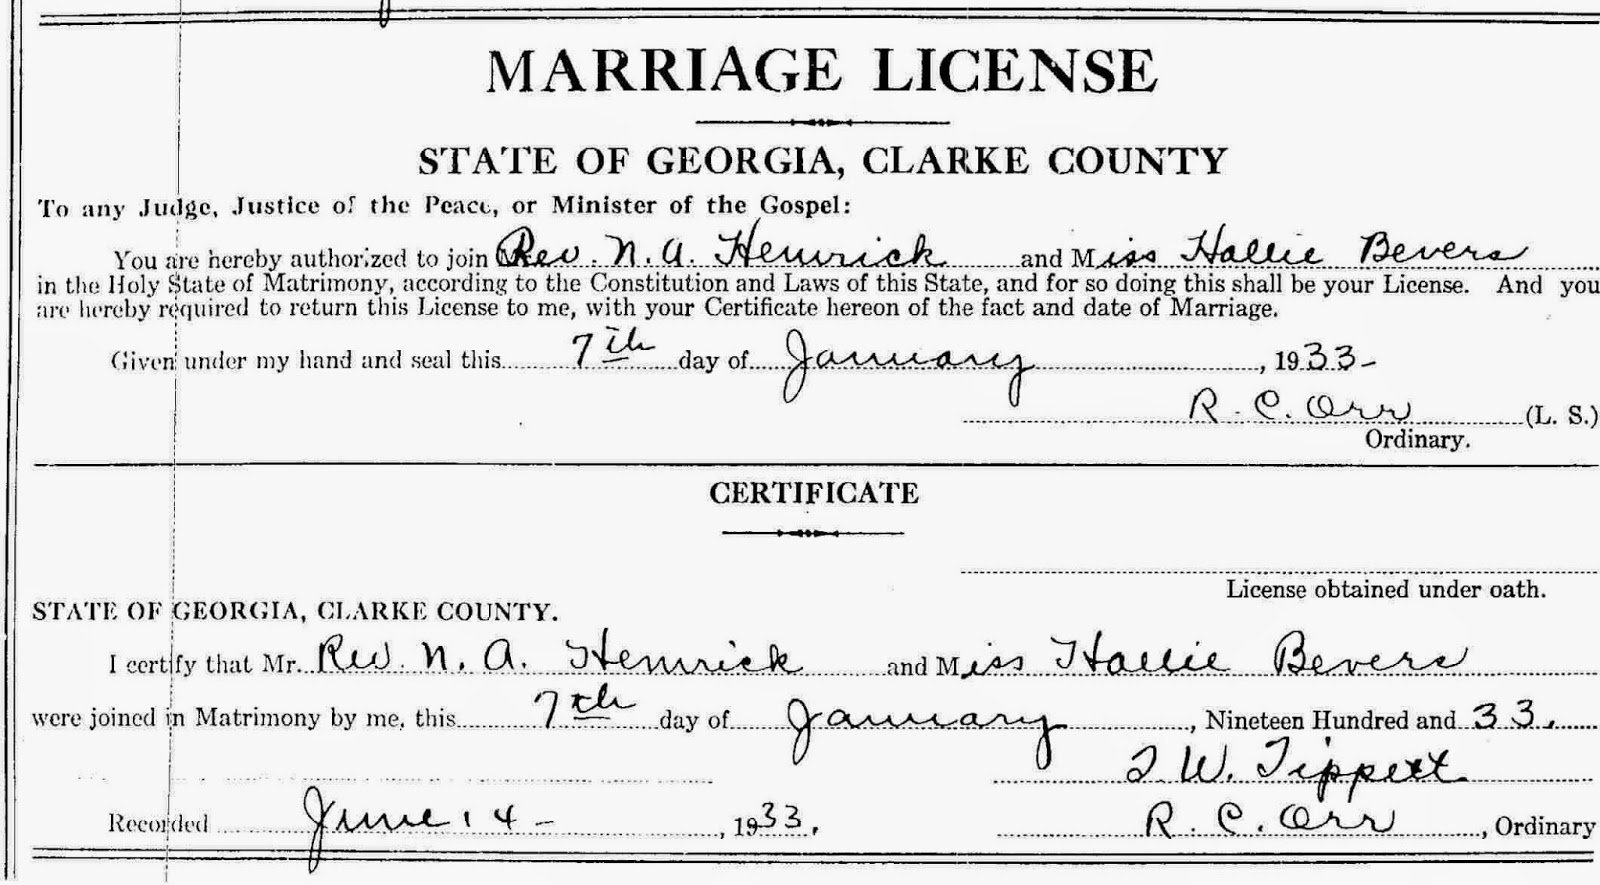 MARRIAGE LICENSE
STATE OF GEORGIA, CLARKE COUNTY
To any Judge, Justice of the Peace, or Minister of the Gospel:
You are hereby authorized to join Rev. N. A. Hemrick and Miss Hallie Bevers
in the Holy State of Matrimony, according to the Constitution and Laws of this State, and for so doing this shall be your License. And you
are hereby required to return this License to me, with your Certificate hereon of the fact and date of Marriage.
Given under my hand and seal this 7th day of January, 1933-
R. C. Orr (L. S.)
Ordinary.
CERTIFICATE
License obtained under oath.
STATE OF GEORGIA, CLARKE COUNTY.
I certify that Mr. Rev. N. A. Hemrick and Miss Hallie Bevers
were joined in Matrimony by me, this 7th day of January, Nineteen Hundred and 33.
T. W. Tippett
Recorded June 14-, 1933. R. C. Orr, Ordinary